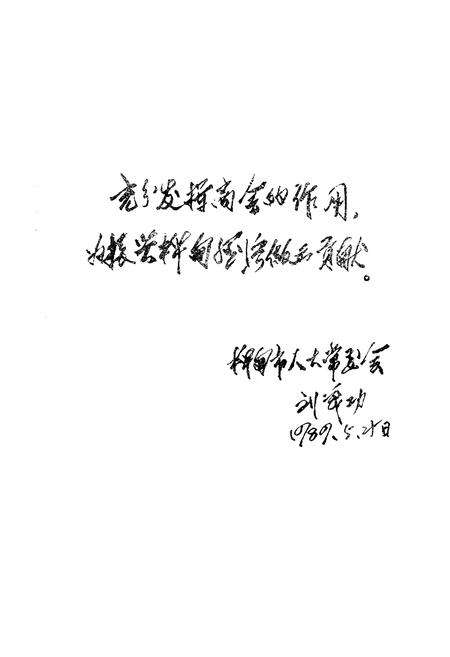 充分发挥商会的作用,
为振兴桦甸经济做出贡献。
桦甸市人大常委会
刘 功
1989.5.2 日